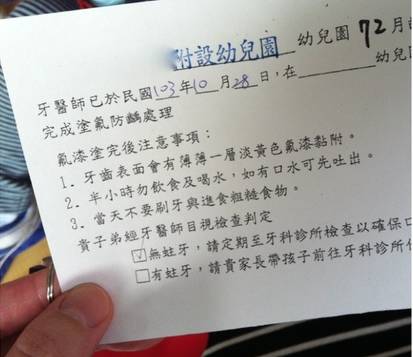 附設幼兒園 幼兒園 72月
牙醫師已於民國103年10月28日,在 幼兒
完成塗氟防齲處理
氟漆塗完後注意事項:
1. 牙齒表面會有薄薄一層淡黃色氟漆黏附。
2. 半小時勿飲食及喝水,如有口水可先吐出。
3. 當天不要刷牙與進食粗糙食物。
貴子弟經牙醫師目視檢查判定
☑無蛀牙,請定期至牙科診所檢查以確保
□有蛀牙,請貴家長帶孩子前往牙科診所